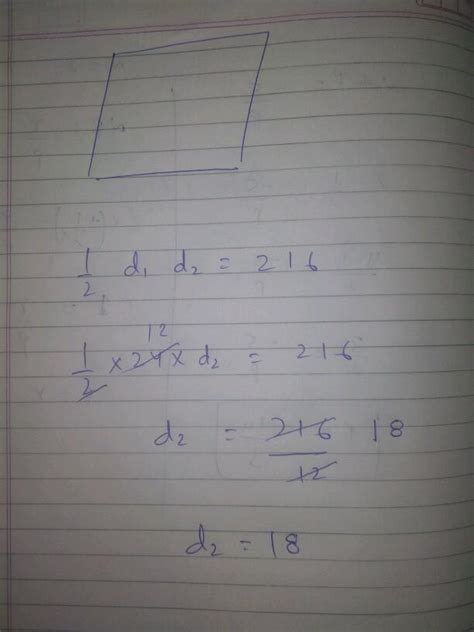 1/2 d₁ d₂ = 216
12
1/2 × 24 × d₂ = 216
d₂ = 216/12 18
d₂ = 18